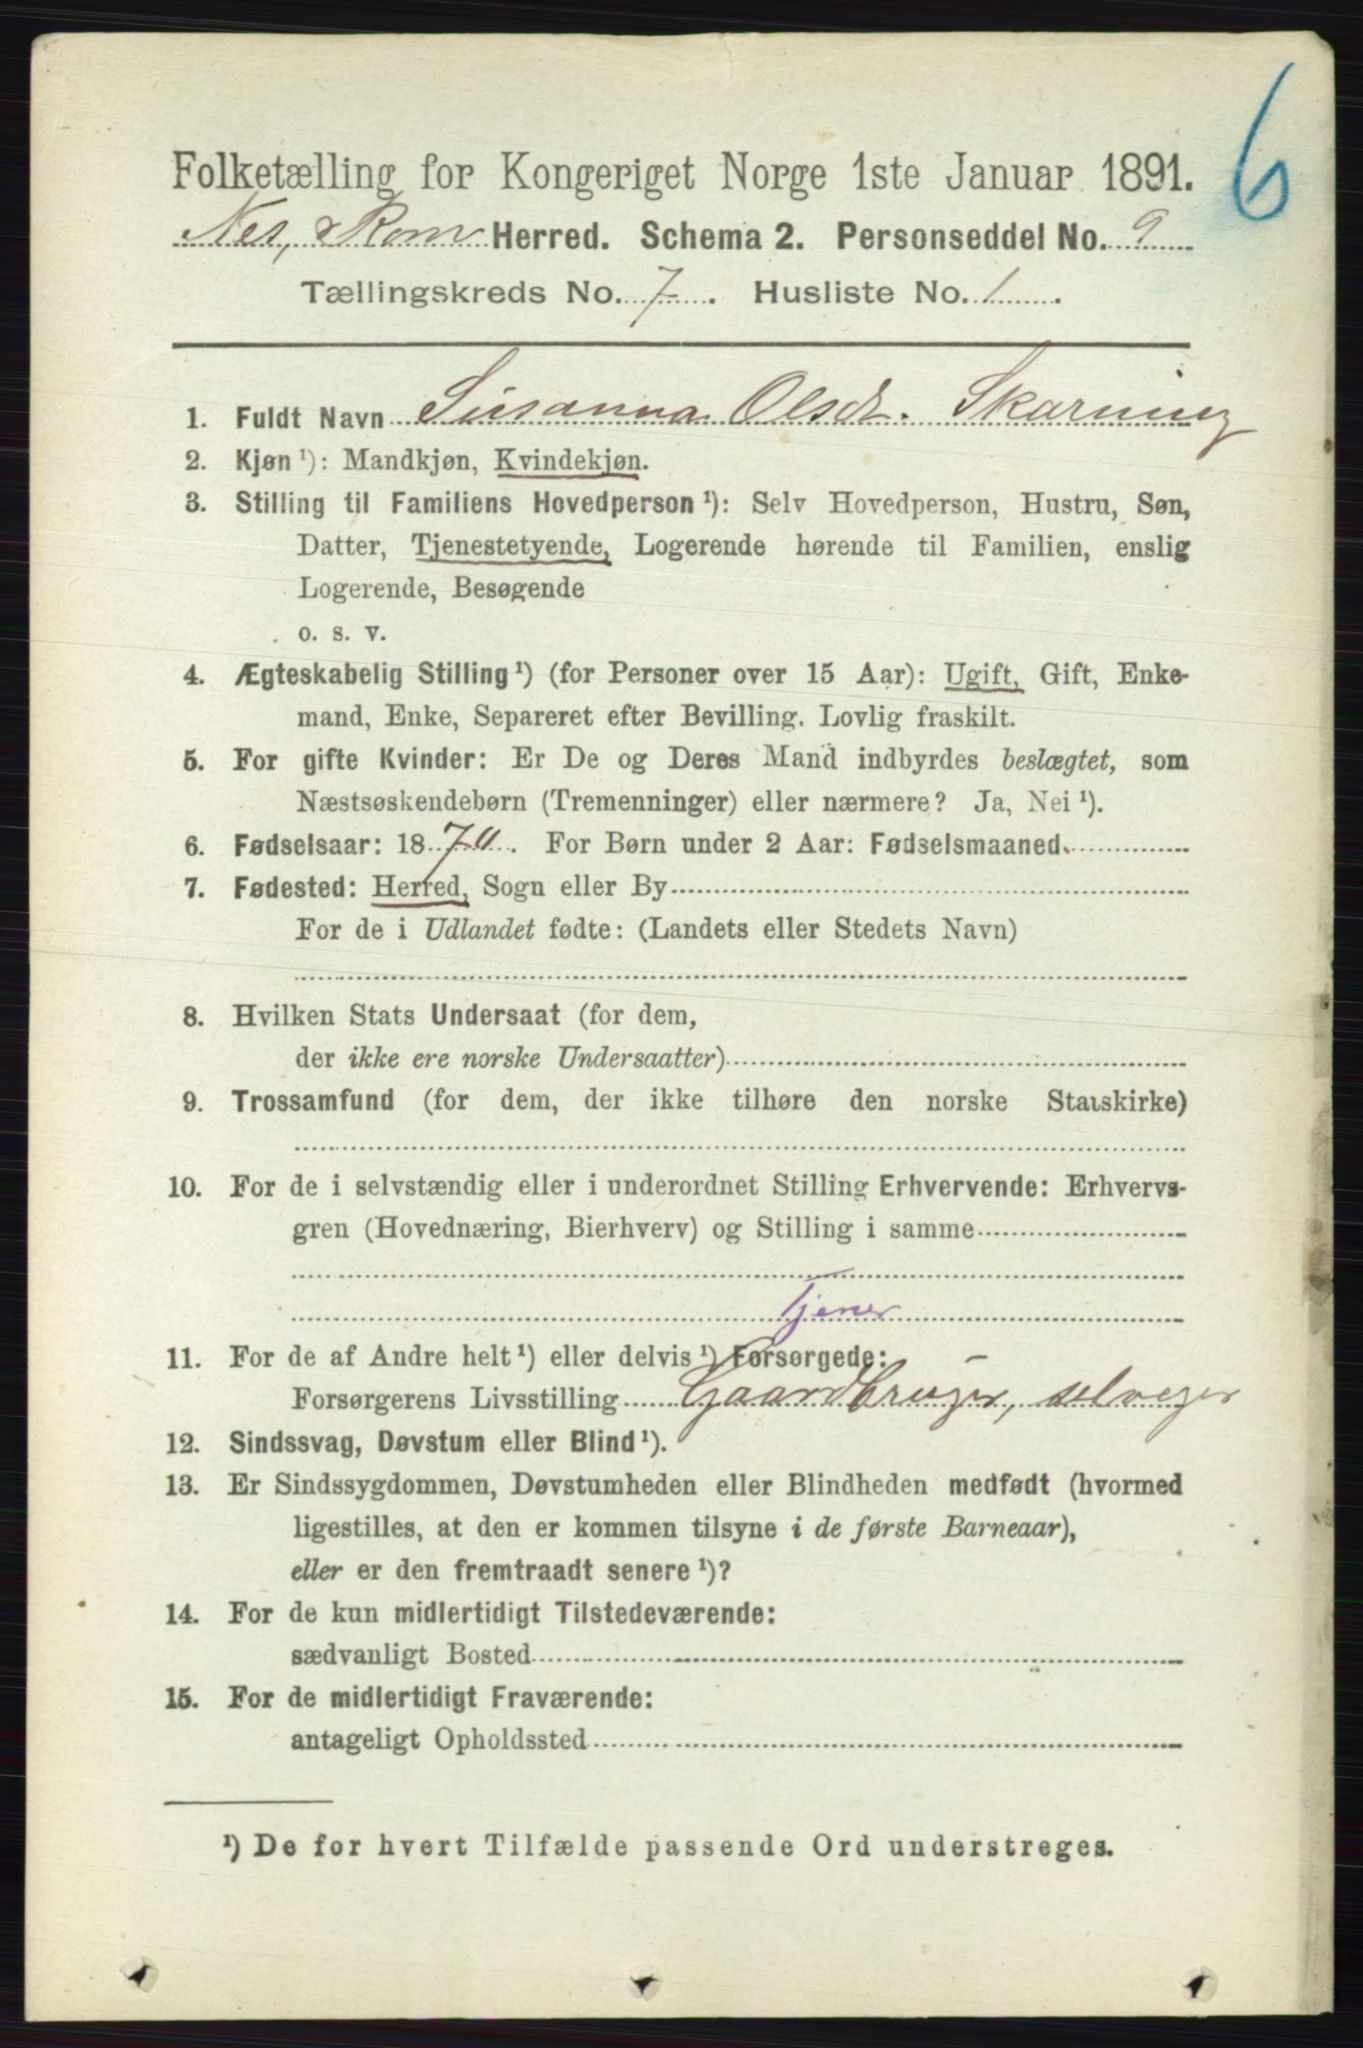 6
Folketælling for Kongeriget Norge 1ste Januar 1891.
Nes, Rom Herred. Schema 2. Personseddel No. 9
Tællingskreds No. 7. Husliste No. 1.
1. Fuldt Navn Susanna Olsdt. Skarning
2. Kjøn ¹): Mandkjøn, Kvindekjøn.
3. Stilling til Familiens Hovedperson ¹): Selv Hovedperson, Hustru, Søn,
Datter, Tjenestetyende, Logerende hørende til Familien, enslig
Logerende, Besøgende
o. s. v.
4. Ægteskabelig Stilling ¹) (for Personer over 15 Aar): Ugift, Gift, Enke-
mand, Enke, Separeret efter Bevilling. Lovlig fraskilt.
5. For gifte Kvinder: Er De og Deres Mand indbyrdes beslægtet, som
Næstsøskendebørn (Tremenninger) eller nærmere? Ja, Nei ¹).
6. Fødselsaar: 1870. For Børn under 2 Aar: Fødselsmaaned.
7. Fødested: Herred, Sogn eller By
For de i Udlandet fødte: (Landets eller Stedets Navn)
8. Hvilken Stats Undersaat (for dem,
der ikke ere norske Undersaatter)
9. Trossamfund (for dem, der ikke tilhøre den norske Statskirke)
10. For de i selvstændig eller i underordnet Stilling Erhvervende: Erhvervs-
gren (Hovednæring, Bierhverv) og Stilling i samme
Tjener
11. For de af Andre helt ¹) eller delvis ¹) Forsørgede:
Forsørgerens Livsstilling Gaardbruger, selveger
12. Sindssvag, Døvstum eller Blind ¹).
13. Er Sindssygdommen, Døvstumheden eller Blindheden medfødt (hvormed
ligestilles, at den er kommen tilsyne i de første Barneaar),
eller er den fremtraadt senere ¹)?
14. For de kun midlertidigt Tilstedeværende:
sædvanligt Bosted
15. For de midlertidigt Fraværende:
antageligt Opholdssted
¹) De for hvert Tilfælde passende Ord understreges.